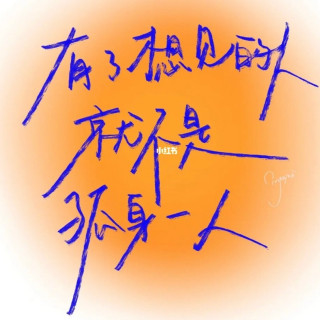 有了想见的人
就不是
小红书
孤身一人